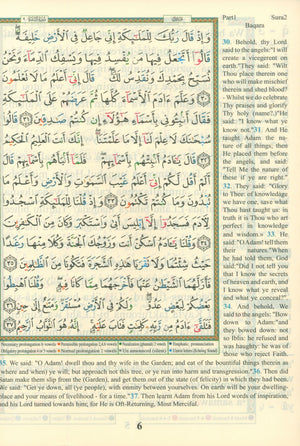 Part1 Sura2
Baqara
وَإِذْ قَالَ رَبُّكَ لِلْمَلَٰٓئِكَةِ إِنِّى جَاعِلٌ فِى ٱلْأَرْضِ خَلِيفَةً
قَالُوٓا۟ أَتَجْعَلُ فِيهَا مَن يُفْسِدُ فِيهَا وَيَسْفِكُ ٱلدِّمَآءَ وَنَحْنُ
نُسَبِّحُ بِحَمْدِكَ وَنُقَدِّسُ لَكَ قَالَ إِنِّىٓ أَعْلَمُ مَا لَا تَعْلَمُونَ
٣٠ وَعَلَّمَ ءَادَمَ ٱلْأَسْمَآءَ كُلَّهَا ثُمَّ عَرَضَهُمْ عَلَى ٱلْمَلَٰٓئِكَةِ
فَقَالَ أَنۢبِـُٔونِى بِأَسْمَآءِ هَٰٓؤُلَآءِ إِن كُنتُمْ صَٰدِقِينَ ٣١ قَالُوا۟
سُبْحَٰنَكَ لَا عِلْمَ لَنَآ إِلَّا مَا عَلَّمْتَنَآ إِنَّكَ أَنتَ ٱلْعَلِيمُ ٱلْحَكِيمُ
٣٢ قَالَ يَٰٓـَٔادَمُ أَنۢبِئْهُم بِأَسْمَآئِهِمْ فَلَمَّآ أَنۢبَأَهُم بِأَسْمَآئِهِمْ قَالَ
أَلَمْ أَقُل لَّكُمْ إِنِّىٓ أَعْلَمُ غَيْبَ ٱلسَّمَٰوَٰتِ وَٱلْأَرْضِ وَأَعْلَمُ مَا
تُبْدُونَ وَمَا كُنتُمْ تَكْتُمُونَ ٣٣ وَإِذْ قُلْنَا لِلْمَلَٰٓئِكَةِ ٱسْجُدُوا۟
لِـَٔادَمَ فَسَجَدُوٓا۟ إِلَّآ إِبْلِيسَ أَبَىٰ وَٱسْتَكْبَرَ وَكَانَ مِنَ ٱلْكَٰفِرِينَ
٣٤ وَقُلْنَا يَٰٓـَٔادَمُ ٱسْكُنْ أَنتَ وَزَوْجُكَ ٱلْجَنَّةَ وَكُلَا مِنْهَا رَغَدًا
حَيْثُ شِئْتُمَا وَلَا تَقْرَبَا هَٰذِهِ ٱلشَّجَرَةَ فَتَكُونَا مِنَ ٱلظَّٰلِمِينَ
٣٥ فَأَزَلَّهُمَا ٱلشَّيْطَٰنُ عَنْهَا فَأَخْرَجَهُمَا مِمَّا كَانَا فِيهِ وَقُلْنَا ٱهْبِطُوا۟
بَعْضُكُمْ لِبَعْضٍ عَدُوٌّ وَلَكُمْ فِى ٱلْأَرْضِ مُسْتَقَرٌّ وَمَتَٰعٌ إِلَىٰ حِينٍ
٣٦ فَتَلَقَّىٰٓ ءَادَمُ مِن رَّبِّهِۦ كَلِمَٰتٍ فَتَابَ عَلَيْهِ إِنَّهُۥ هُوَ ٱلتَّوَّابُ ٱلرَّحِيمُ ٣٧
30. Behold, thy Lord
said to the angels:"I will
create a vicegerent on
earth."They said: "Will
Thou place therein one
who will make mischief
therein and shed blood?
Whilst we do celebrate
Thy praises and glorify
Thy holy (name?."He
said: "I know what ye
know not."31. And He
taught Adam the na-
ture of all things; then
He placed them before
the angels, and said:
"Tell Me the nature of
these if ye are right."
32. They said: "Glory
to Thee: of knowledge
we have one, save what
Thou hast taught us: in
truth it is Thou who art
perfect in knowledge
and wisdom.» 33. He
said: "O Adam! tell them
their natures."When
he had told them, God
said:"Did I not tell you
that I know the secrets
of heaven and earth, and
I know what ye reveal
and what ye conceal?"
34. And behold, We
said to the angels: "Bow
down to Adam"and
they bowed down: not
so Iblis: he refused and
was haughty: he was of
those who reject Faith.
35. We said: "O Adam! dwell thou and thy wife in the Garden; and eat of the bountiful things therein as
where and when) ye will; but approach not this tree, or ye run into harm and transgression."36. Then did
Satan make them slip from the (Garden), and get them out of the state (of felicity) in which they had been.
We said: "Get ye down, all (ye people), with enmity between yourselves. On earth will be your dwelling
place and your means of livelihood - for a time."37. Then learnt Adam from his Lord words of inspiration;
and his Lord turned towards him; for He is Oft-Returning, Most Merciful.
6